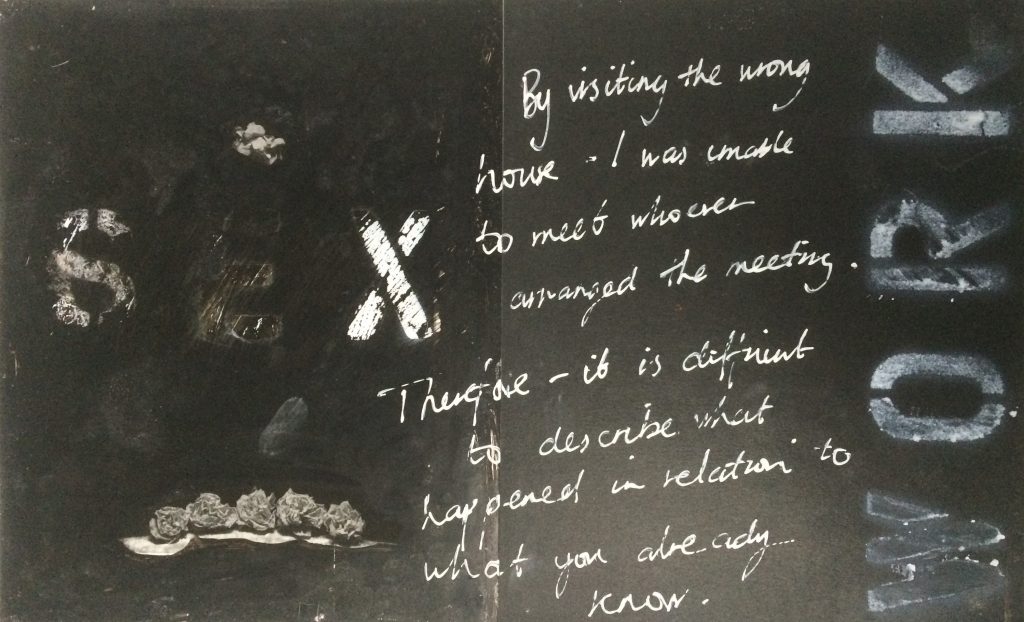 SEX
By visiting the wrong
house - I was unable
to meet whoever
arranged the meeting.
Therefore - it is diffrent
to describe what
happened in relation to
what you already
know.
WORK